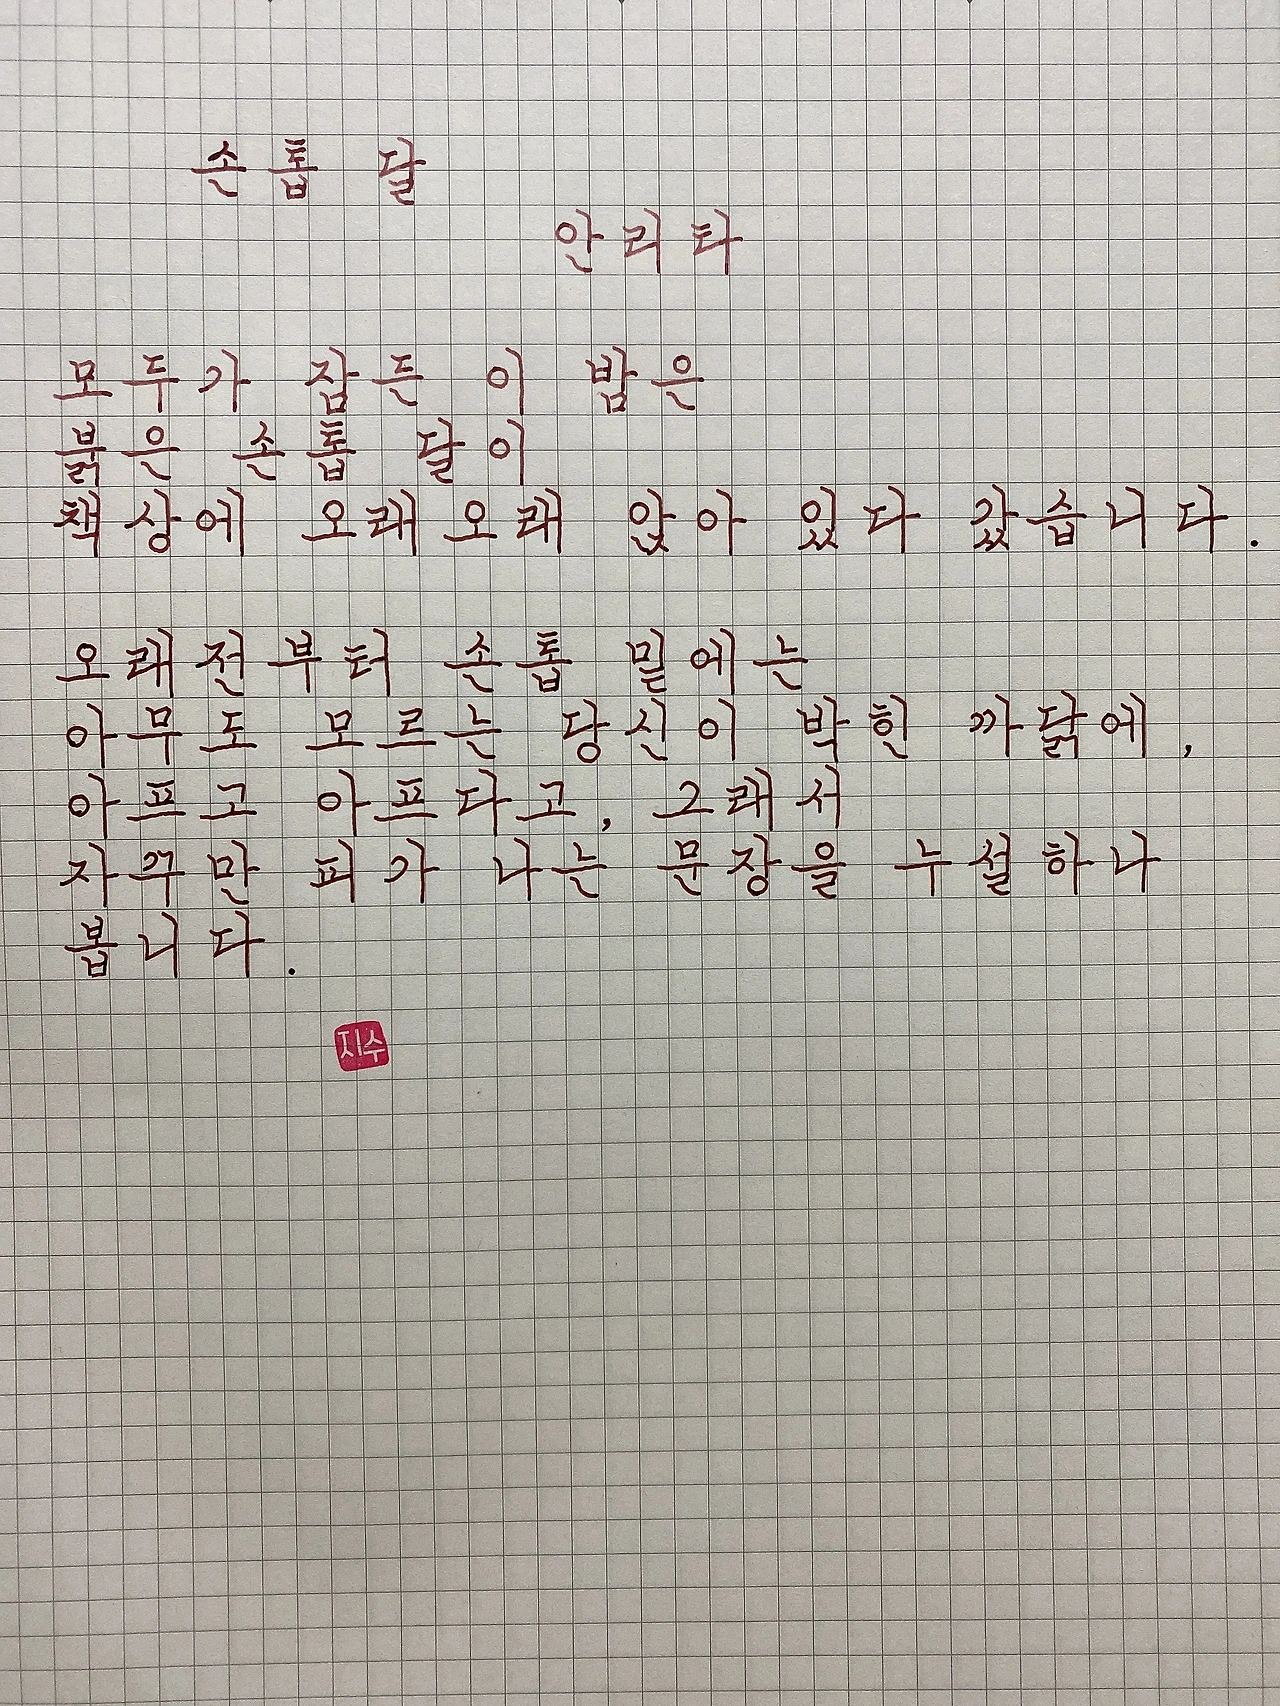 손톱 달
안리타
모두가 잠든 이 밤은
붉은 손톱 달이
책상에 오래오래 앉아 있다 갔습니다.
오래전부터 손톱 밑에는
아무도 모르는 당신이 박힌 까닭에,
아프고 아프다고, 그래서
자꾸만 피가 나는 문장을 누설하나
봅니다.
지수